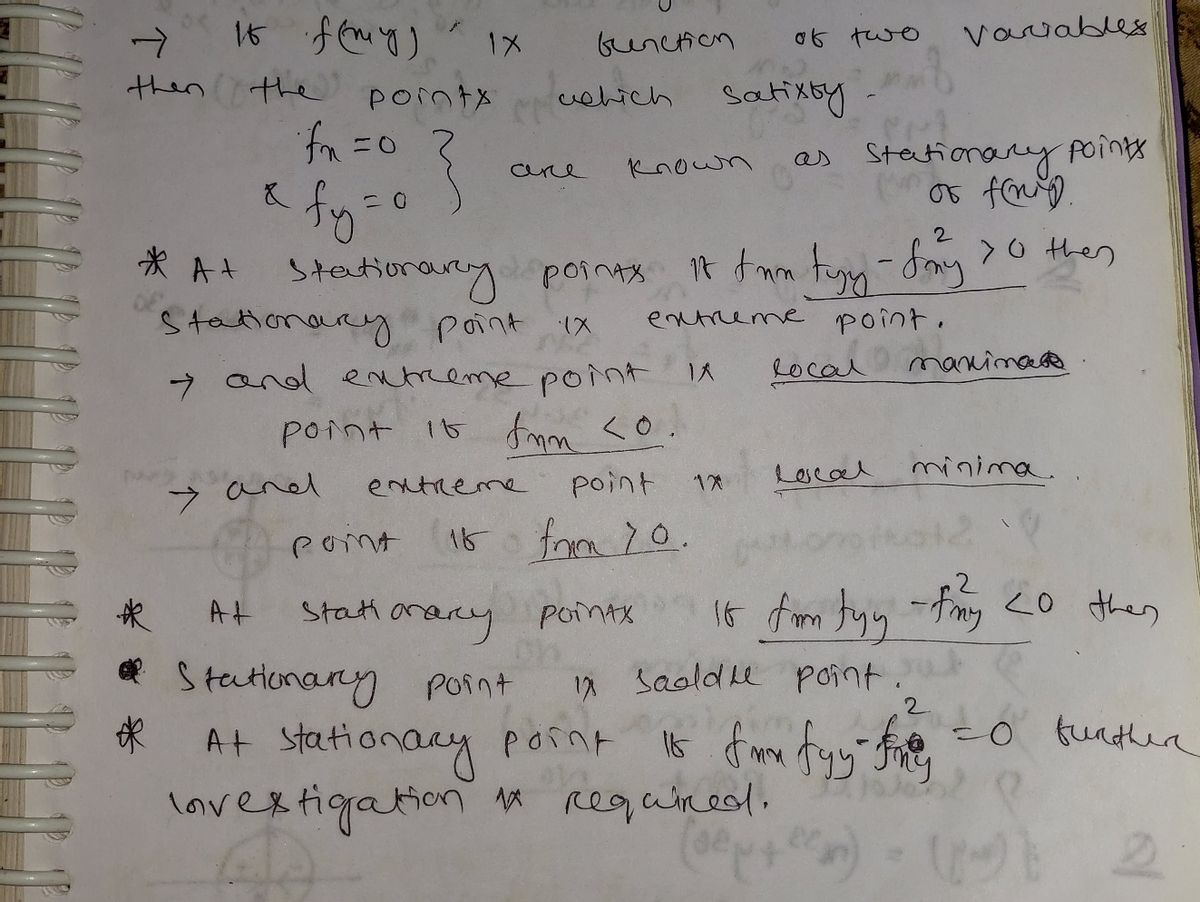 → If f(x,y) is function of two variables
then the points which satisfy -
fx = 0 } are known as stationary points
& fy = 0 of f(x,y).
* At stationary points if fxx fyy - fxy² > 0 then
stationary point is extreme point.
→ and extreme point is local maxima
point if fxx < 0.
→ and extreme point is local minima.
point if fxx > 0.
* At stationary points if fxx fyy - fxy² < 0 then
stationary point is saddle point.
* At stationary point if fxx fyy - fxy² = 0 further
investigation is required.